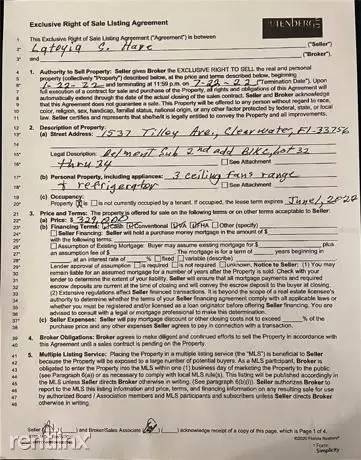 Exclusive Right of Sale Listing Agreement
1 This Exclusive Right of Sale Listing Agreement ("Agreement") is between
2* Latoyia S. Hare ("Seller")
3* and ("Broker").
4 1. Authority to Sell Property: Seller gives Broker the EXCLUSIVE RIGHT TO SELL the real and personal
5 property (collectively "Property") described below, at the price and terms described below, beginning
6* 1-22-22 and terminating at 11:59 p.m. on 7-22-22 ("Termination Date"). Upon
7 full execution of a contract for sale and purchase of the Property, all rights and obligations of this Agreement will
8 automatically extend through the date of the actual closing of the sales contract. Seller and Broker acknowledge
9 that this Agreement does not guarantee a sale. This Property will be offered to any person without regard to race,
10 color, religion, sex, handicap, familial status, national origin, or any other factor protected by federal, state, or local
11 law. Seller certifies and represents that she/he/it is legally entitled to convey the Property and all improvements.
12 2. Description of Property:
13* (a) Street Address: 1537 Tilley Ave., Clearwater, Fl-33756
14
15* Legal Description: Belmont Sub 2nd add Blk C, Lot 32
16* thru 34 See Attachment
17* (b) Personal Property, including appliances: 3 ceiling fans range
18* + refrigerator See Attachment
19 (c) Occupancy:
20* Property is is not currently occupied by a tenant. If occupied, the lease term expires June 1, 2022
21 3. Price and Terms: The property is offered for sale on the following terms or on other terms acceptable to Seller:
22* (a) Price: $ 329,900
23* (b) Financing Terms: Cash Conventional VA FHA Other (specify)
24* Seller Financing: Seller will hold a purchase money mortgage in the amount of $
25* with the following terms:
26* Assumption of Existing Mortgage: Buyer may assume existing mortgage for $ plus
27* an assumption fee of $ The mortgage is for a term of years beginning in
28* at an interest rate of % fixed variable (describe)
29* Lender approval of assumption is required is not required unknown. Notice to Seller: (1) You may
30 remain liable for an assumed mortgage for a number of years after the Property is sold. Check with your
31 lender to determine the extent of your liability. Seller will ensure that all mortgage payments and required
32 escrow deposits are current at the time of closing and will convey the escrow deposit to the buyer at closing.
33 (2) Extensive regulations affect Seller financed transactions. It is beyond the scope of a real estate licensee's
34 authority to determine whether the terms of your Seller financing agreement comply with all applicable laws or
35 whether you must be registered and/or licensed as a loan originator before offering Seller financing. You are
36 advised to consult with a legal or mortgage professional to make this determination.
37* (c) Seller Expenses: Seller will pay mortgage discount or other closing costs not to exceed % of the
38 purchase price and any other expenses Seller agrees to pay in connection with a transaction.
39 4. Broker Obligations: Broker agrees to make diligent and continued efforts to sell the Property in accordance with
40 this Agreement until a sales contract is pending on the Property.
41 5. Multiple Listing Service: Placing the Property in a multiple listing service (the "MLS") is beneficial to Seller
42 because the Property will be exposed to a large number of potential buyers. As a MLS participant, Broker is
43 obligated to enter the Property into the MLS within one (1) business day of marketing the Property to the public
44 (see Paragraph 6(a)) or as necessary to comply with local MLS rule(s). This listing will be published accordingly in
45 the MLS unless Seller directs Broker otherwise in writing. (See paragraph 6(b)(i)). Seller authorizes Broker to
46 report to the MLS this listing information and price, terms, and financing information on any resulting sale for use
47 by authorized Board / Association members and MLS participants and subscribers unless Seller directs Broker
48 otherwise in writing.
Seller and Broker/Sales Associate acknowledge receipt of a copy of this page, which is Page 1 of 4.
©2020 Florida Realtors®
Form
Simplicity
rentlinx